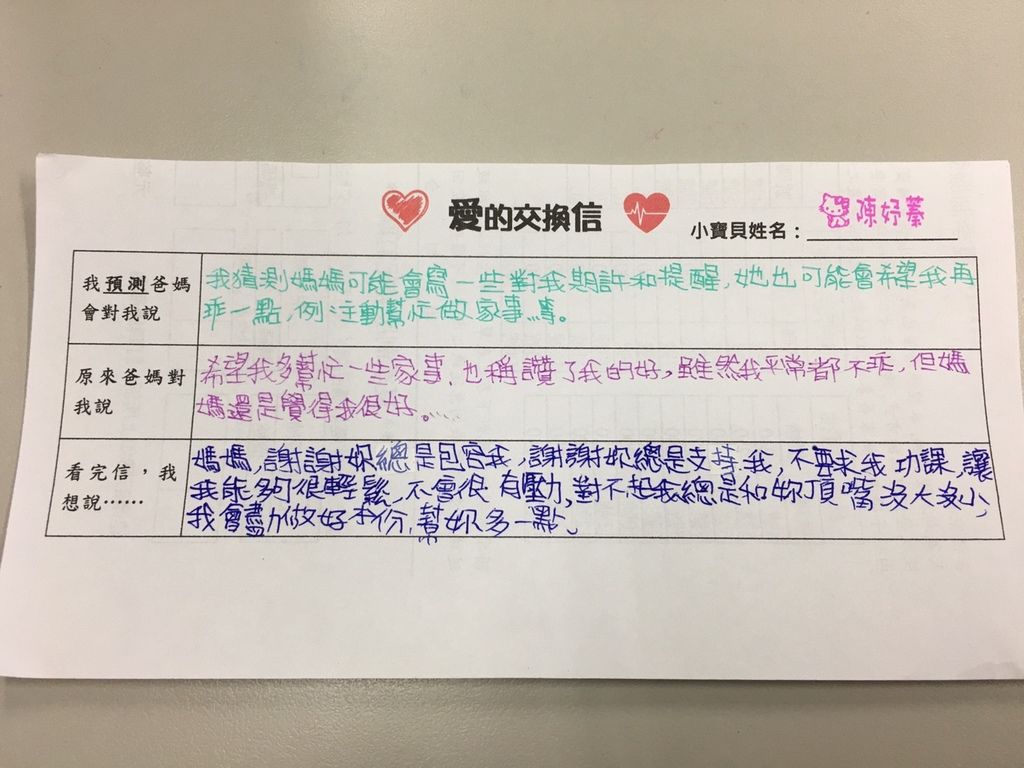 愛的交換信
小寶貝姓名：陳妤蓁
我預測爸媽
會對我說
我猜測媽媽可能會寫一些對我期許和提醒,她也可能會希望我再
乖一點,例:主動幫忙做家事…等。
原來爸媽對
我說
希望我多幫忙一些家事,也稱讚了我的好,雖然我平常都不乖,但媽
媽還是覺得我很好。
看完信，我
想說……
媽媽,謝謝妳總是包容我,謝謝妳總是支持我,不要求我功課,讓
我能夠很輕鬆,不會很有壓力,對不起我總是和妳頂嘴沒大沒小,
我會盡力做好本份,幫妳多一點。